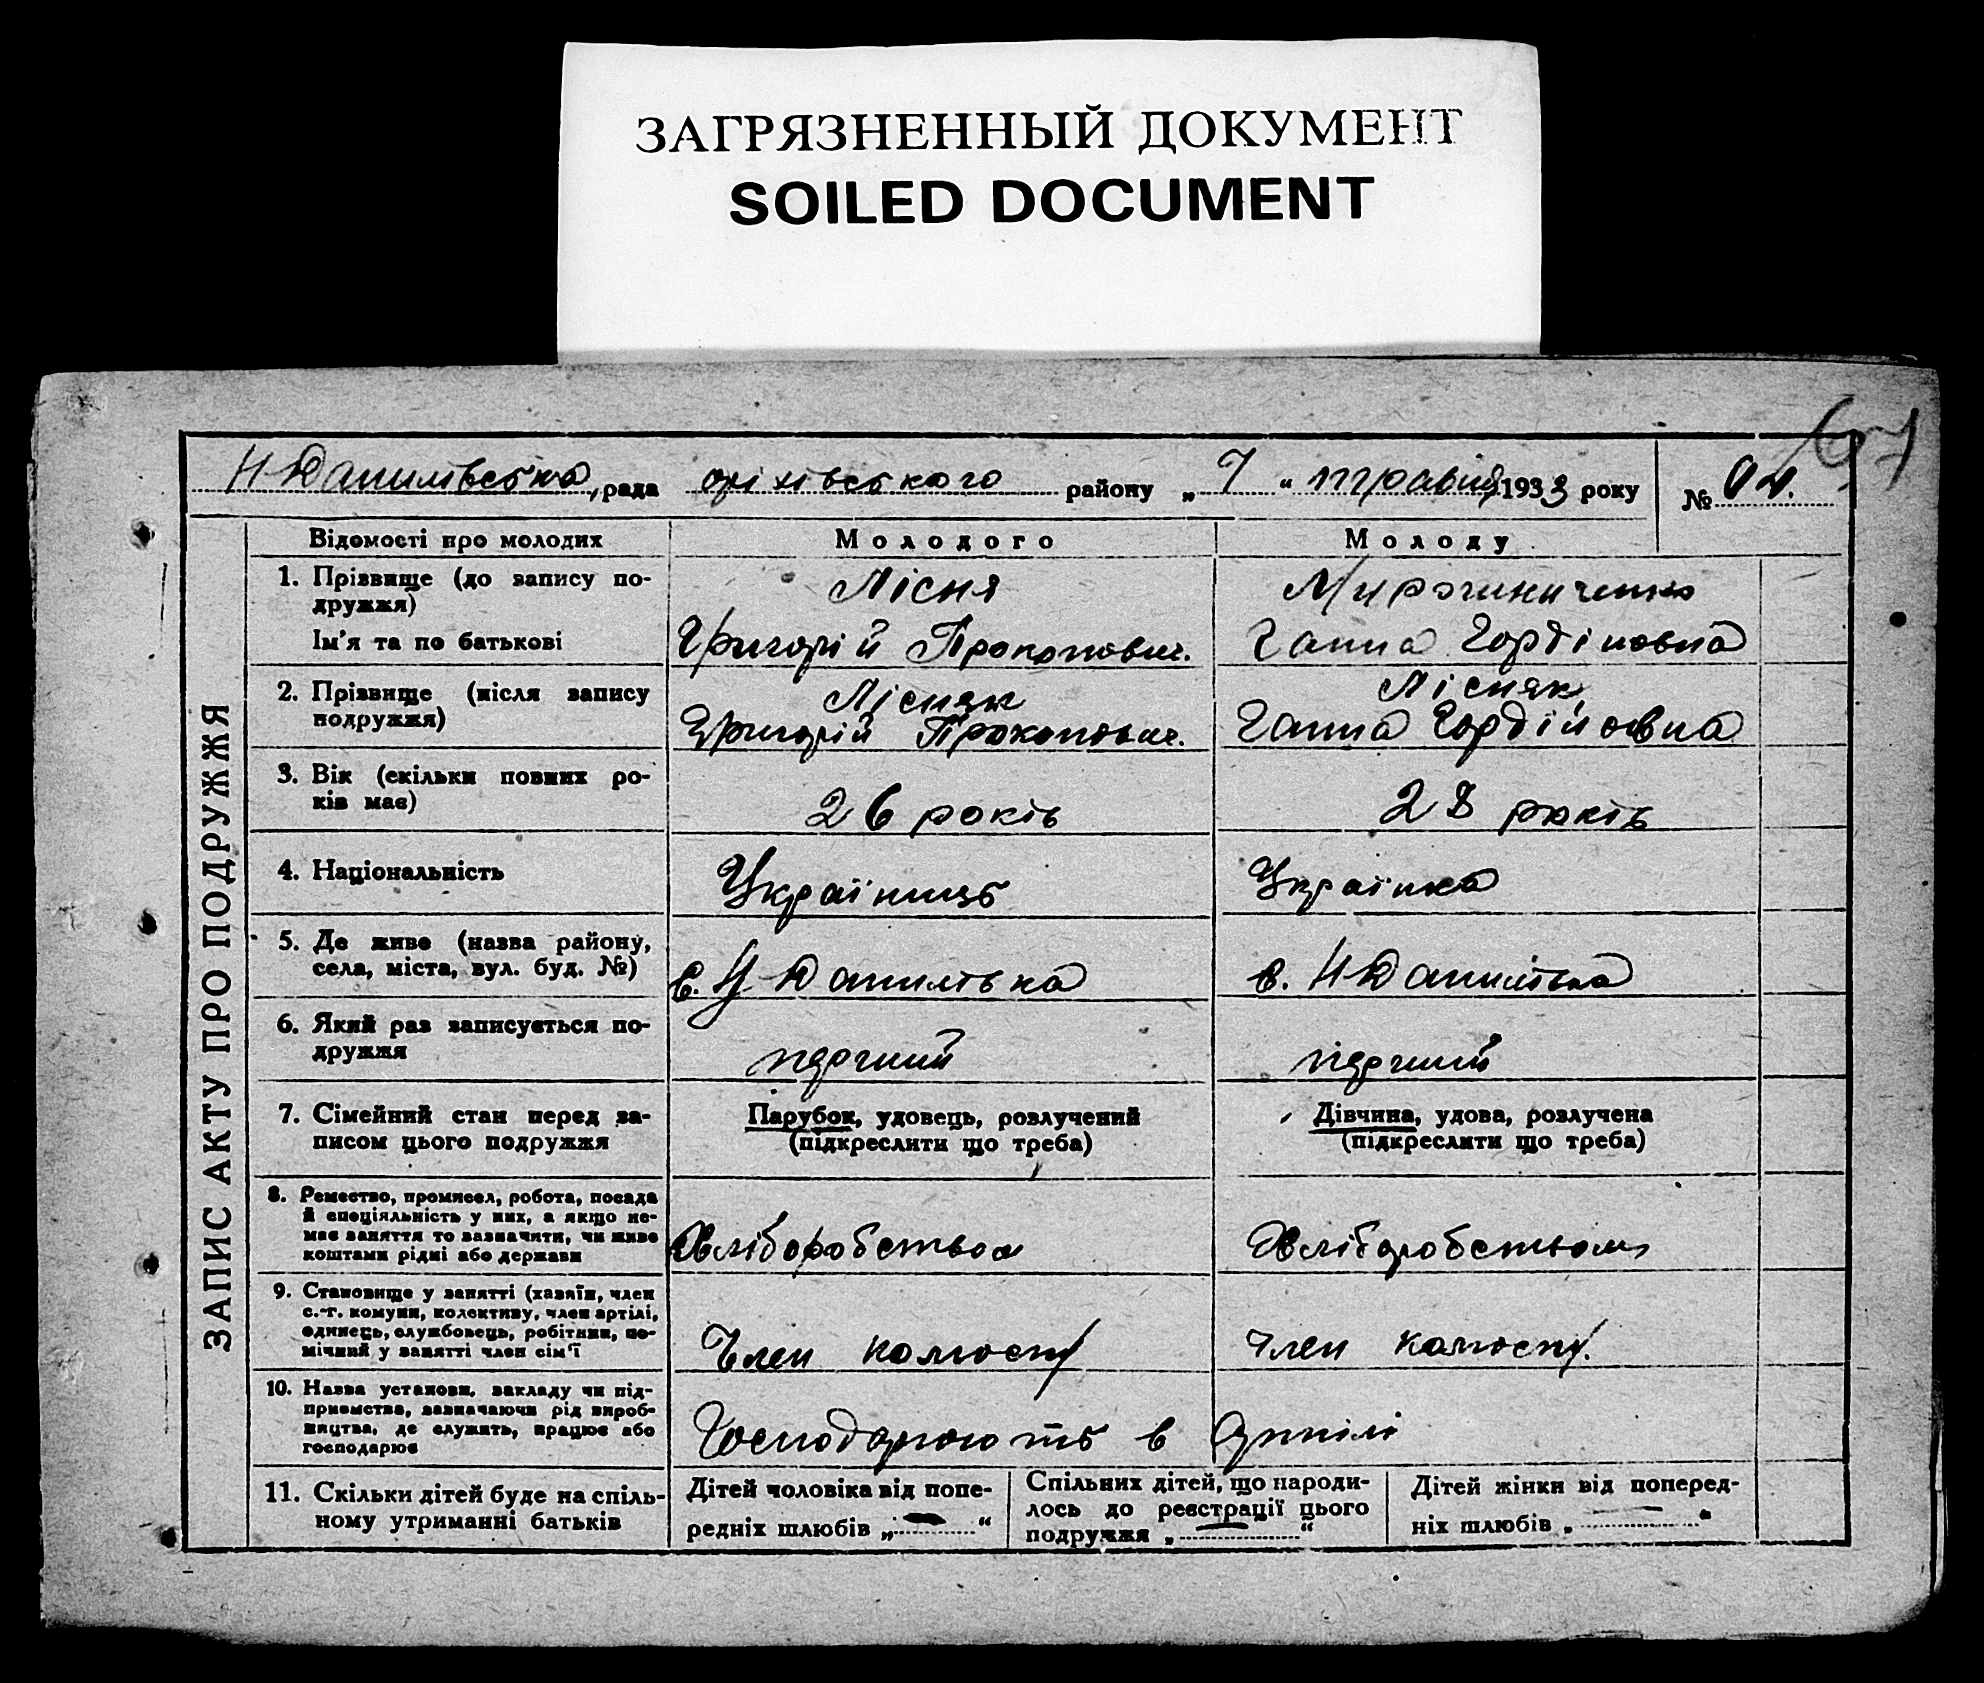 ЗАГРЯЗНЕННЫЙ ДОКУМЕНТ
SOILED DOCUMENT
Н Данилівська, рада оріхівського району „ 7 “ травня 1933 року №
ЗАПИС АКТУ ПРО ПОДРУЖЖЯ
Відомості про молодих
Молодого
Молоду
1. Прізвище (до запису по-
дружжя)
Ім'я та по батькові
Лісня
Григорій Прокопович.
Мирошниченко
Ганна Гордіновна
2. Прізвище (після запису
подружжя)
Лісняк
Григорій Прокопович.
Лісняк
Ганна Гордійовна
3. Вік (скільки повних ро-
ків має)
26 років
28 років
4. Національність
Українець
Українка
5. Де живе (назва району,
села, міста, вул. буд. №)
с. Н Данилівка
с. Н Данилівка
6. Який раз записується по-
дружжя
перший
перший
7. Сімейний стан перед за-
писом цього подружжя
Парубок, удовець, розлучений
(підкреслити що треба)
Дівчина, удова, розлучена
(підкреслити що треба)
8. Ремество, промисел, робота, посада
й спеціяльність у них, а якщо не-
має заняття то зазначити, чи живе
коштами рідні або держави
Хліборобством
Хліборобством
9. Становище у занятті (хазяїн, член
с.-г. комуни, колективу, член артілі,
одинець, службовець, робітник, по-
мічний у занятті член сім'ї
Член колгоспу
Член колгоспу.
10. Назва установи, закладу чи під-
приємства, зазначаючи рід вироб-
ництва, де служить, працює або
господарює
Господарюють в Артілі
11. Скільки дітей буде на спіль-
ному утриманні батьків
Дітей чоловіка від попе-
редніх шлюбів „ — “
Спільних дітей, що народи-
лось до реєстрації цього
подружжя „ — “
Дітей жінки від поперед-
ніх шлюбів „ — “